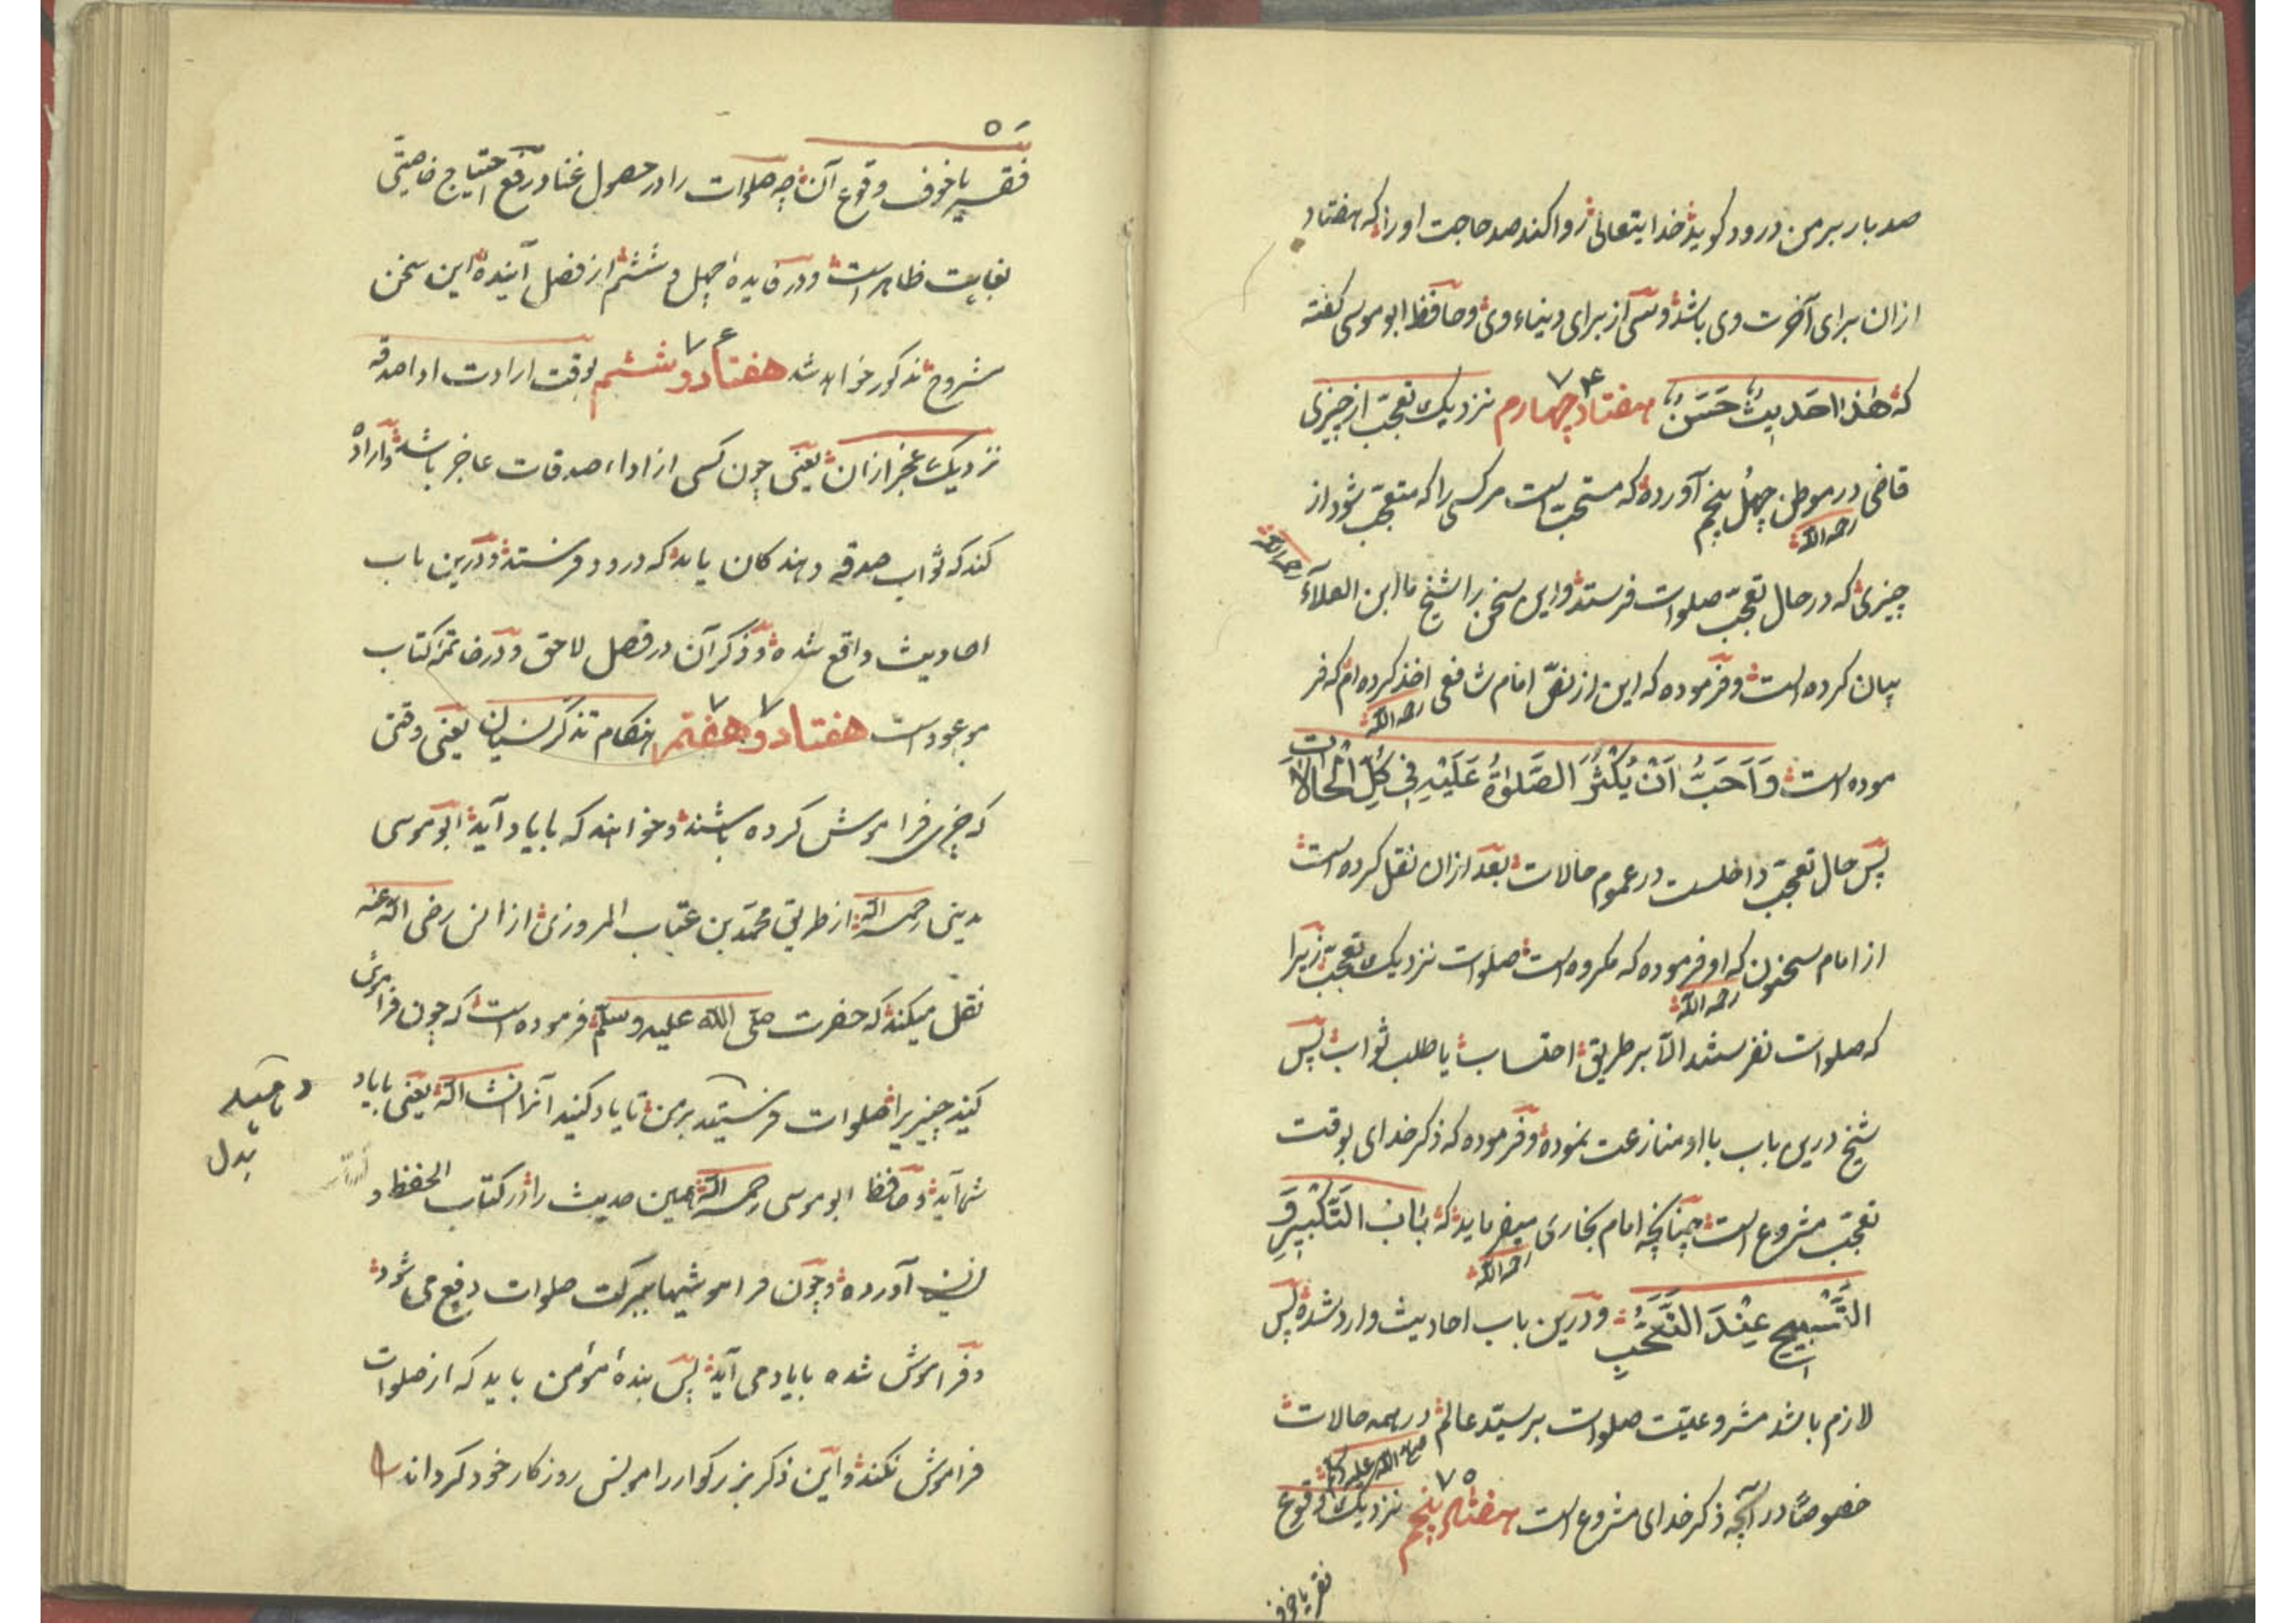 صد بار بر من درود کوید خدایتعالی روا کند صد حاجت او را که هفتاد
ازان برای آخرت وی باشد و سی از برای دنیاء وی و حافظ ابو موسی کفته
که هٰذَا حَدِیثٌ حَسَنٌ هفتاد چهارم ۷۴ نزدیک تعجّب از چیزی
قاضی رحمه الله در موطن چهل پنجم آورده که مستحبّ است مر کسی را که متعجّب شود از
چیزی که در حال تعجّب صلوات فرستد و این سخن را شیخ ما ابن العلاء رحمه الله
بیان کرده است و فرموده که این از نصّ امام شافعی رحمه الله اخذ کرده ام که فر
موده است وَاَحَبُّ اَنْ یُکْثِرَ الصَّلوٰةُ عَلَیْهِ فِی کُلِّ الْحَالَاتِ
پس حال تعجّب داخلست در عموم حالات بعد ازان نقل کرده است
از امام سحنون رحمه الله که او فرموده که مکروه است صلوات نزدیک تعجّب زیرا
که صلوات نفرستند الّا بر طریق احتساب یا طلب ثواب پس
شیخ درین باب با او منازعت نموده و فرموده که ذکر خدای بوقت
تعجّب مشروع است چنانچه امام بخاری رحمه الله میفرماید که بَابُ التَّکْبِیرِ وَ
التَّسْبِیحِ عِنْدَ التَّعَجُّبِ و درین باب احادیث وارد شده پس
لازم باشد مشروعیّت صلوات بر سیّد عالم صلی الله علیه وسلم در همه حالات
خصوصًا در آنچه ذکر خدای مشروع است هفتاد پنجم ۷۵ نزدیک وقوع
فقر یا خوف
فقر یا خوف وقوع آن چه صلوات را در حصول غنا و رفع احتیاج خاصیّتی
بغایت ظاهر است و در فایدهٔ چهل و ششم از فصل آینده این سخن
مشروح مذکور خواهد شد هفتاد و ششم ۷۶ بوقت ارادت ادا صدقه
نزدیک عجز ازان یعنی چون کسی از اداء صدقات عاجز باشد و اراده
کند که ثواب صدقه دهندکان یابد که درود فرستد و درین باب
احادیث واقع شده و ذکر آن در فصل لاحق و در خاتمهٔ کتاب
موعود است هفتاد و هفتم ۷۷ هنکام تذکر نسیان یعنی وقتی
که چیزی فراموش کرده باشند و خواهند که با یاد آید ابو موسی
مدینی رحمه الله از طریق محمّد بن عتاب المروزی از انس رضی الله عنه
نقل میکند که حضرت صلّی الله علیه وسلّم فرموده است که چون فراموش
کنید چیزیرا صلوات فرستید بر من تا یاد کنید آنرا انشاالله یعنی با یاد
شما آید و حافظ ابو موسی رحمه الله همین حدیث را در کتاب الحفظ و
النسیان آورده و چون فراموشیها ببرکت صلوات دفع می شود
و فراموش شده با یاد می آید پس بندهٔ مؤمن باید که از صلوات
فراموش نکند و این ذکر بزرکوار را مونس روزکار خود کرداند
بدل